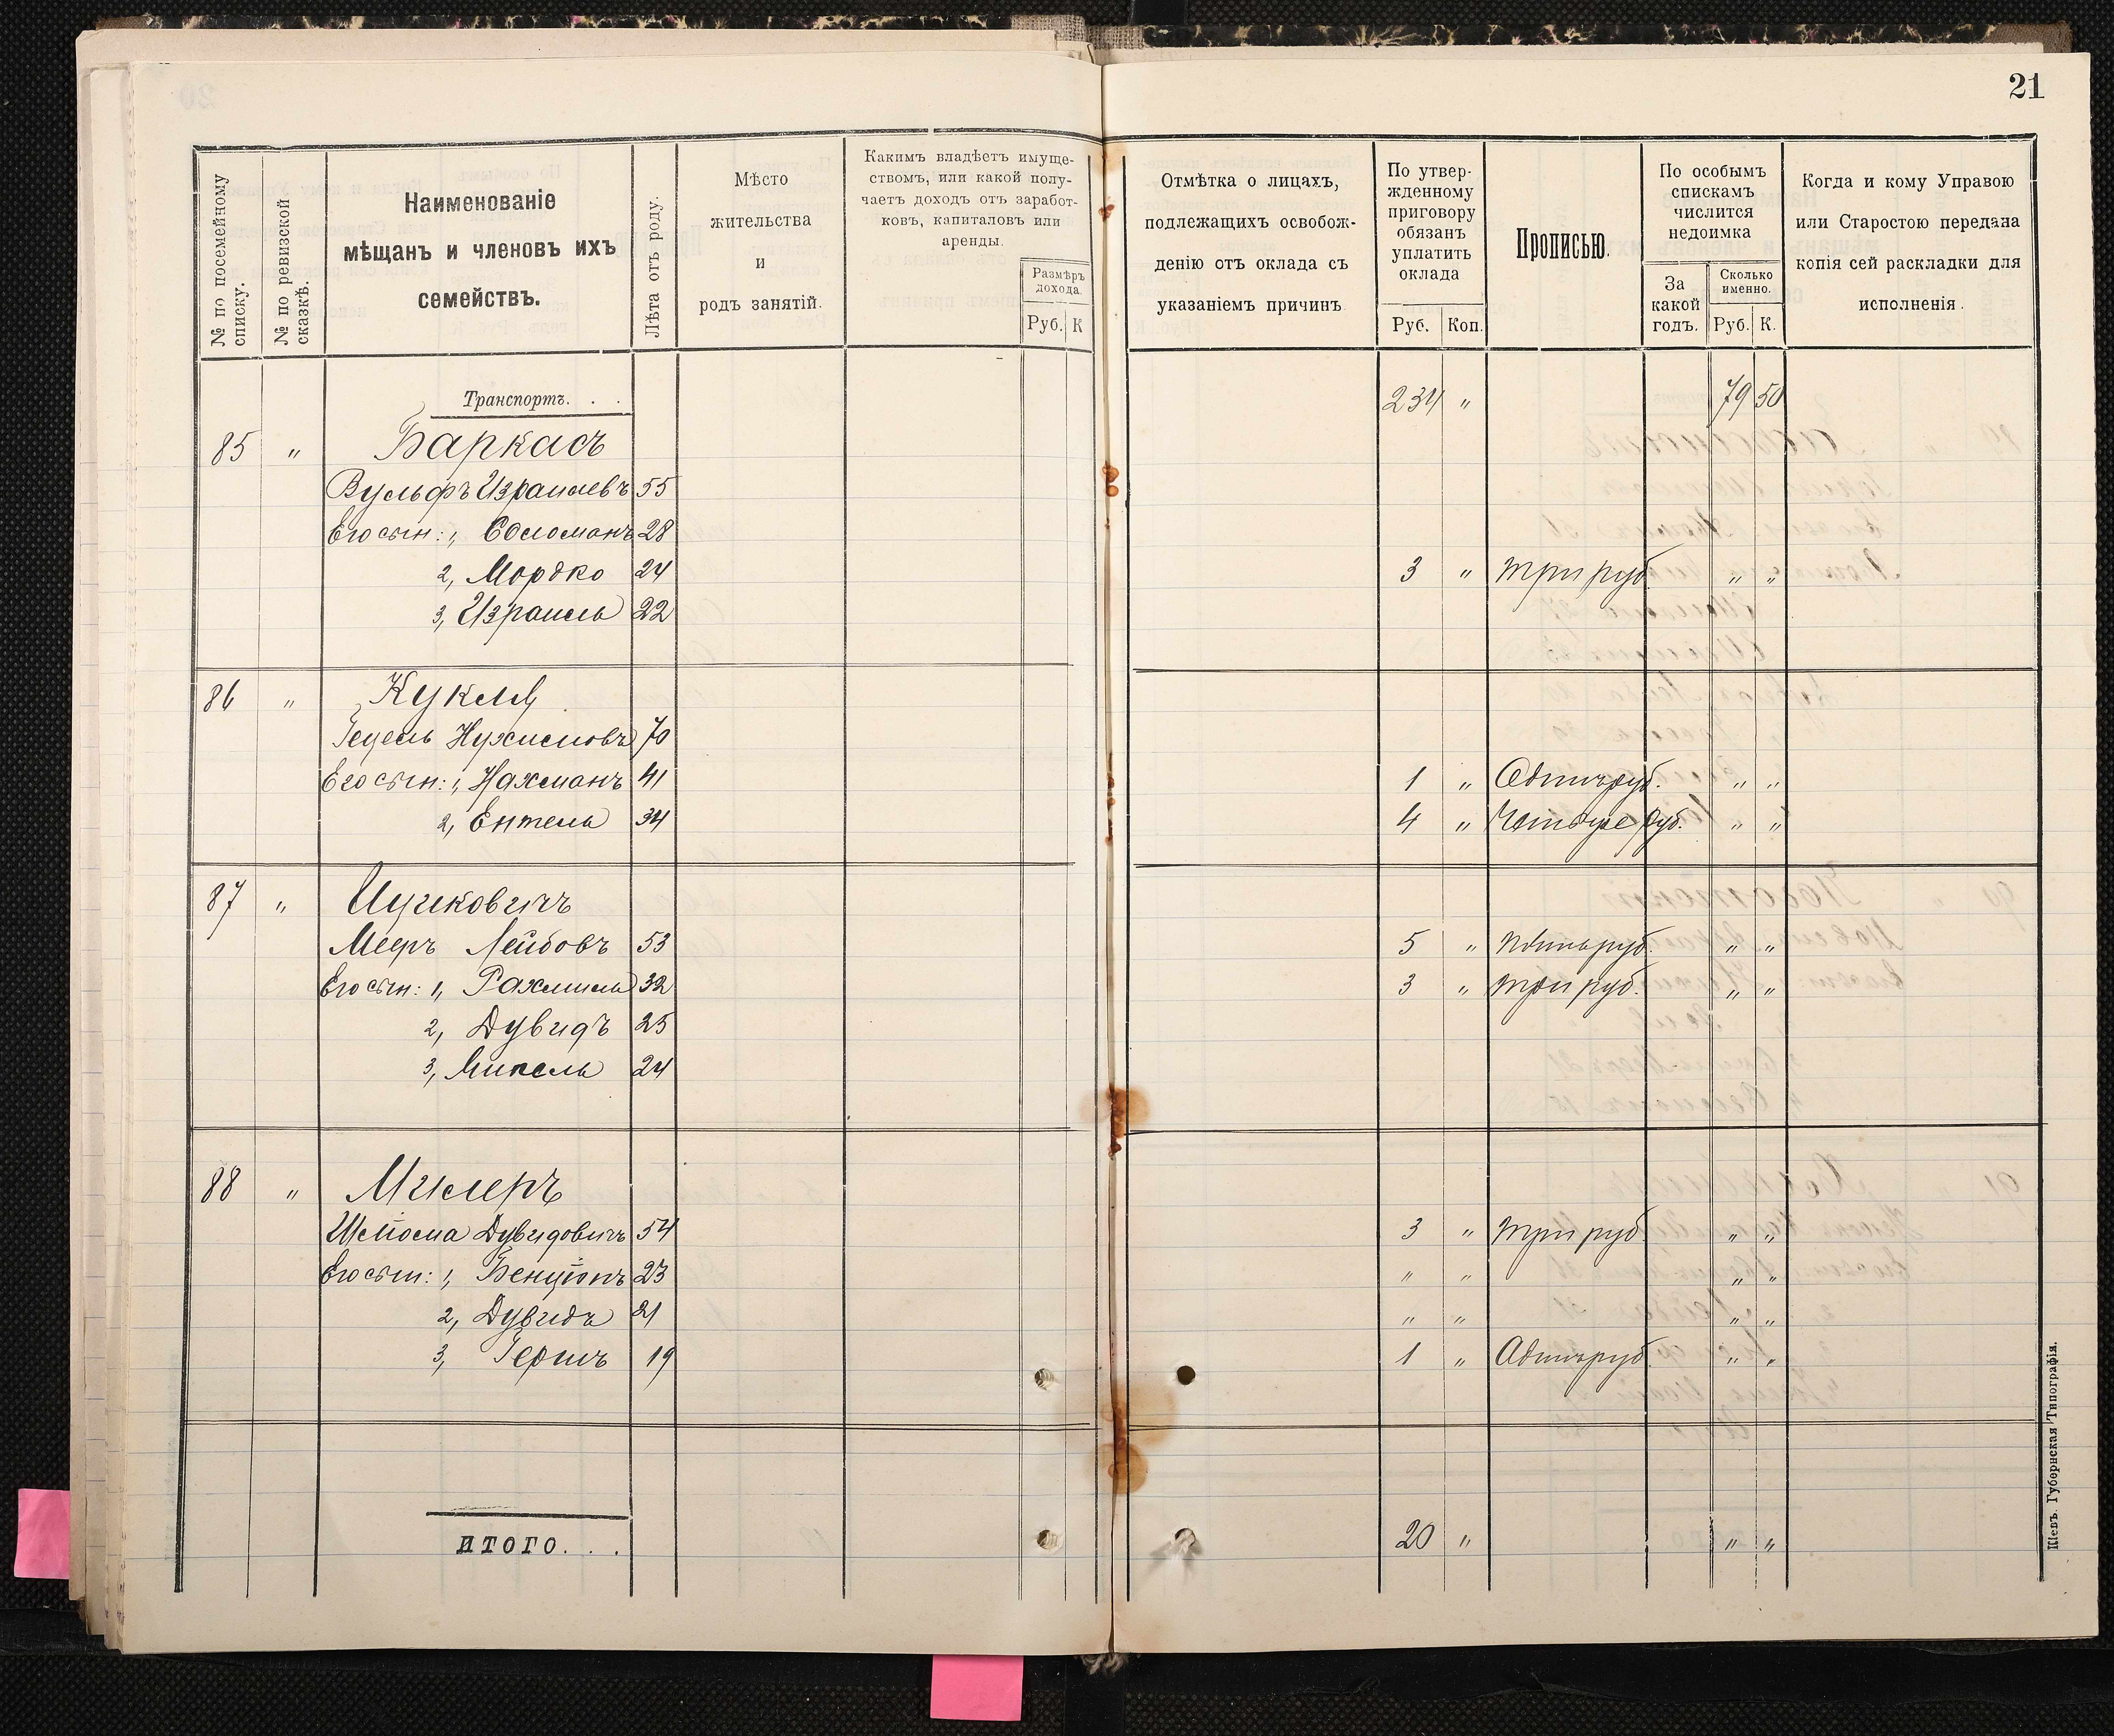 21
№ по посемейному списку.
№ по ревизской сказкѣ.
Наименованіе
мѣщанъ и членовъ ихъ
семействъ.
Лѣта отъ роду.
Мѣсто
жительства
и
родъ занятій.
Какимъ владѣетъ имуще-
ствомъ, или какой полу-
чаетъ доходъ отъ заработ-
ковъ, капиталовъ или
аренды.
Размѣръ
дохода.
Руб. К
Отмѣтка о лицахъ,
подлежащихъ освобож-
денію отъ оклада съ
указаніемъ причинъ
По утвер-
жденному
приговору
обязанъ
уплатить
оклада
Руб. Коп.
Прописью.
По особымъ
спискамъ
числится
недоимка
За
какой
годъ.
Сколько
именно.
Руб. К.
Когда и кому Управою
или Старостою передана
копія сей раскладки для
исполненія.
Транспортъ. . . 234 " 79 50
85 " Баркасъ
Вульфъ Израилевъ 55
Его сын: 1, Соломанъ 28
2, Мордко 24 3 " три руб. " "
3, Израиль 22
86 " Куклы
Гецель Нухимовъ 70
Его сын: 1, Нахманъ 41 1 " Одинъ руб. " "
2, Ентель 34 4 " Четыре руб. " "
87 " Ицковичъ
Мееръ Лейбовъ 53 5 " пять руб. " "
Его сын: 1, Рахмиль 32 3 " три руб. " "
2, Дувидъ 25
3, Михель 24
88 " Милеръ
Шліома Дувидовичъ 54 3 " три руб. " "
Его сын: 1, Бенціонъ 23 " " " "
2, Дувидъ 21 " " " "
3, Гершъ 19 1 " Адинъ руб. " "
ИТОГО. . . 20 " " "
Кіевъ. Губернская Типографія.